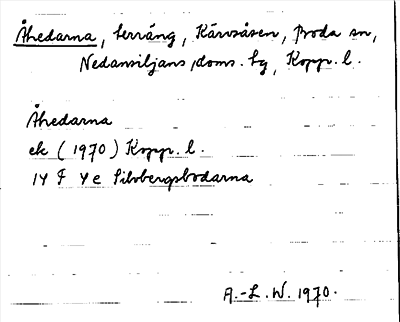 Åhedarna, terräng, Kårsåsen, Boda sn,
Nedansiljans doms. tg, Kopp. l.
Åhedarna
ek (1970) Kopp. l.
14 F 4 e Silvbergsbodarna
A.-L. W. 1970.